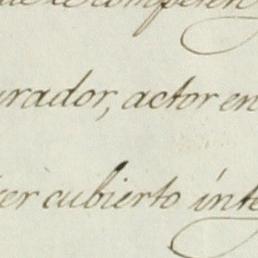 urador, actor en
er cubierto inte